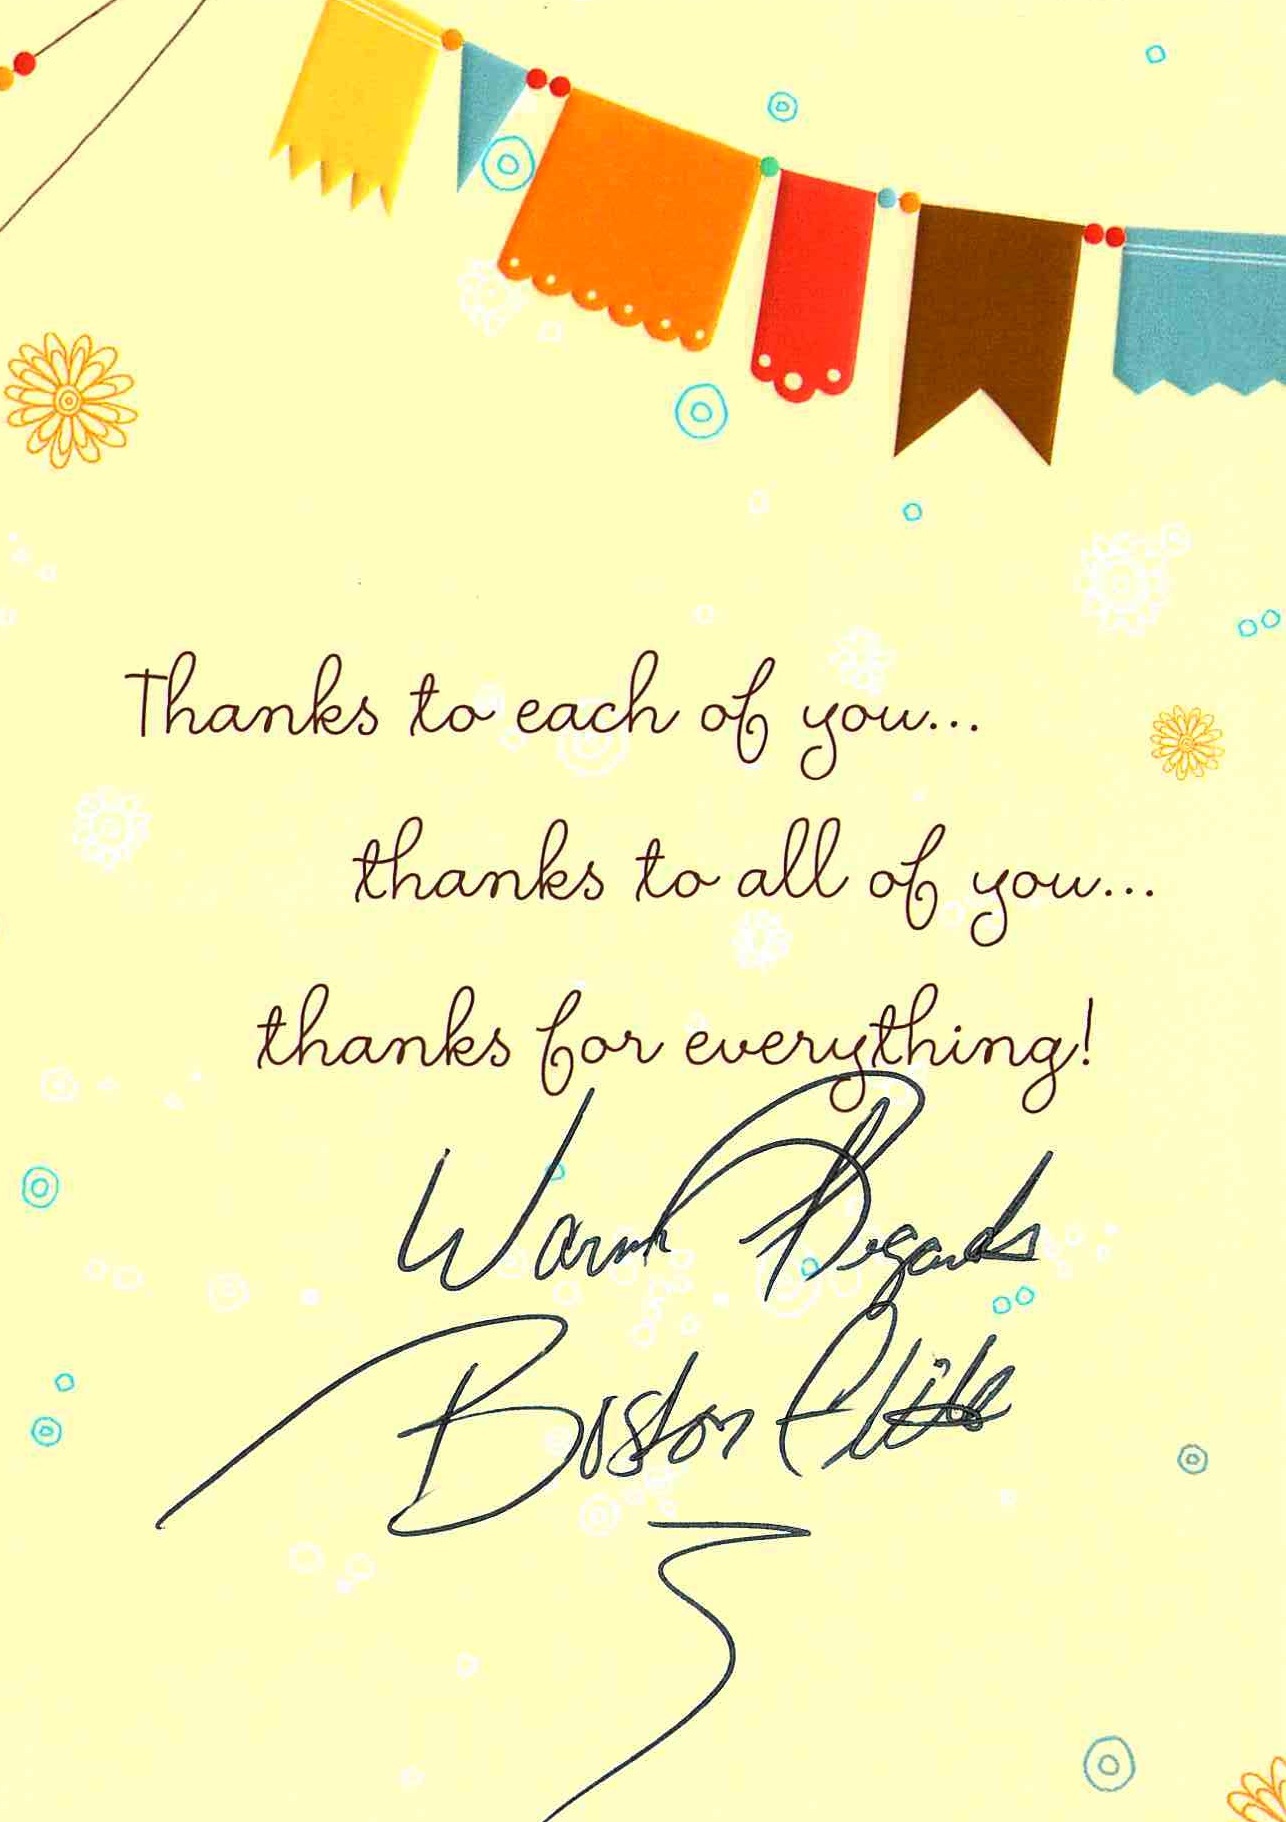 Thanks to each of you...
thanks to all of you...
thanks for everything!
Warm Regards
Boston Elite